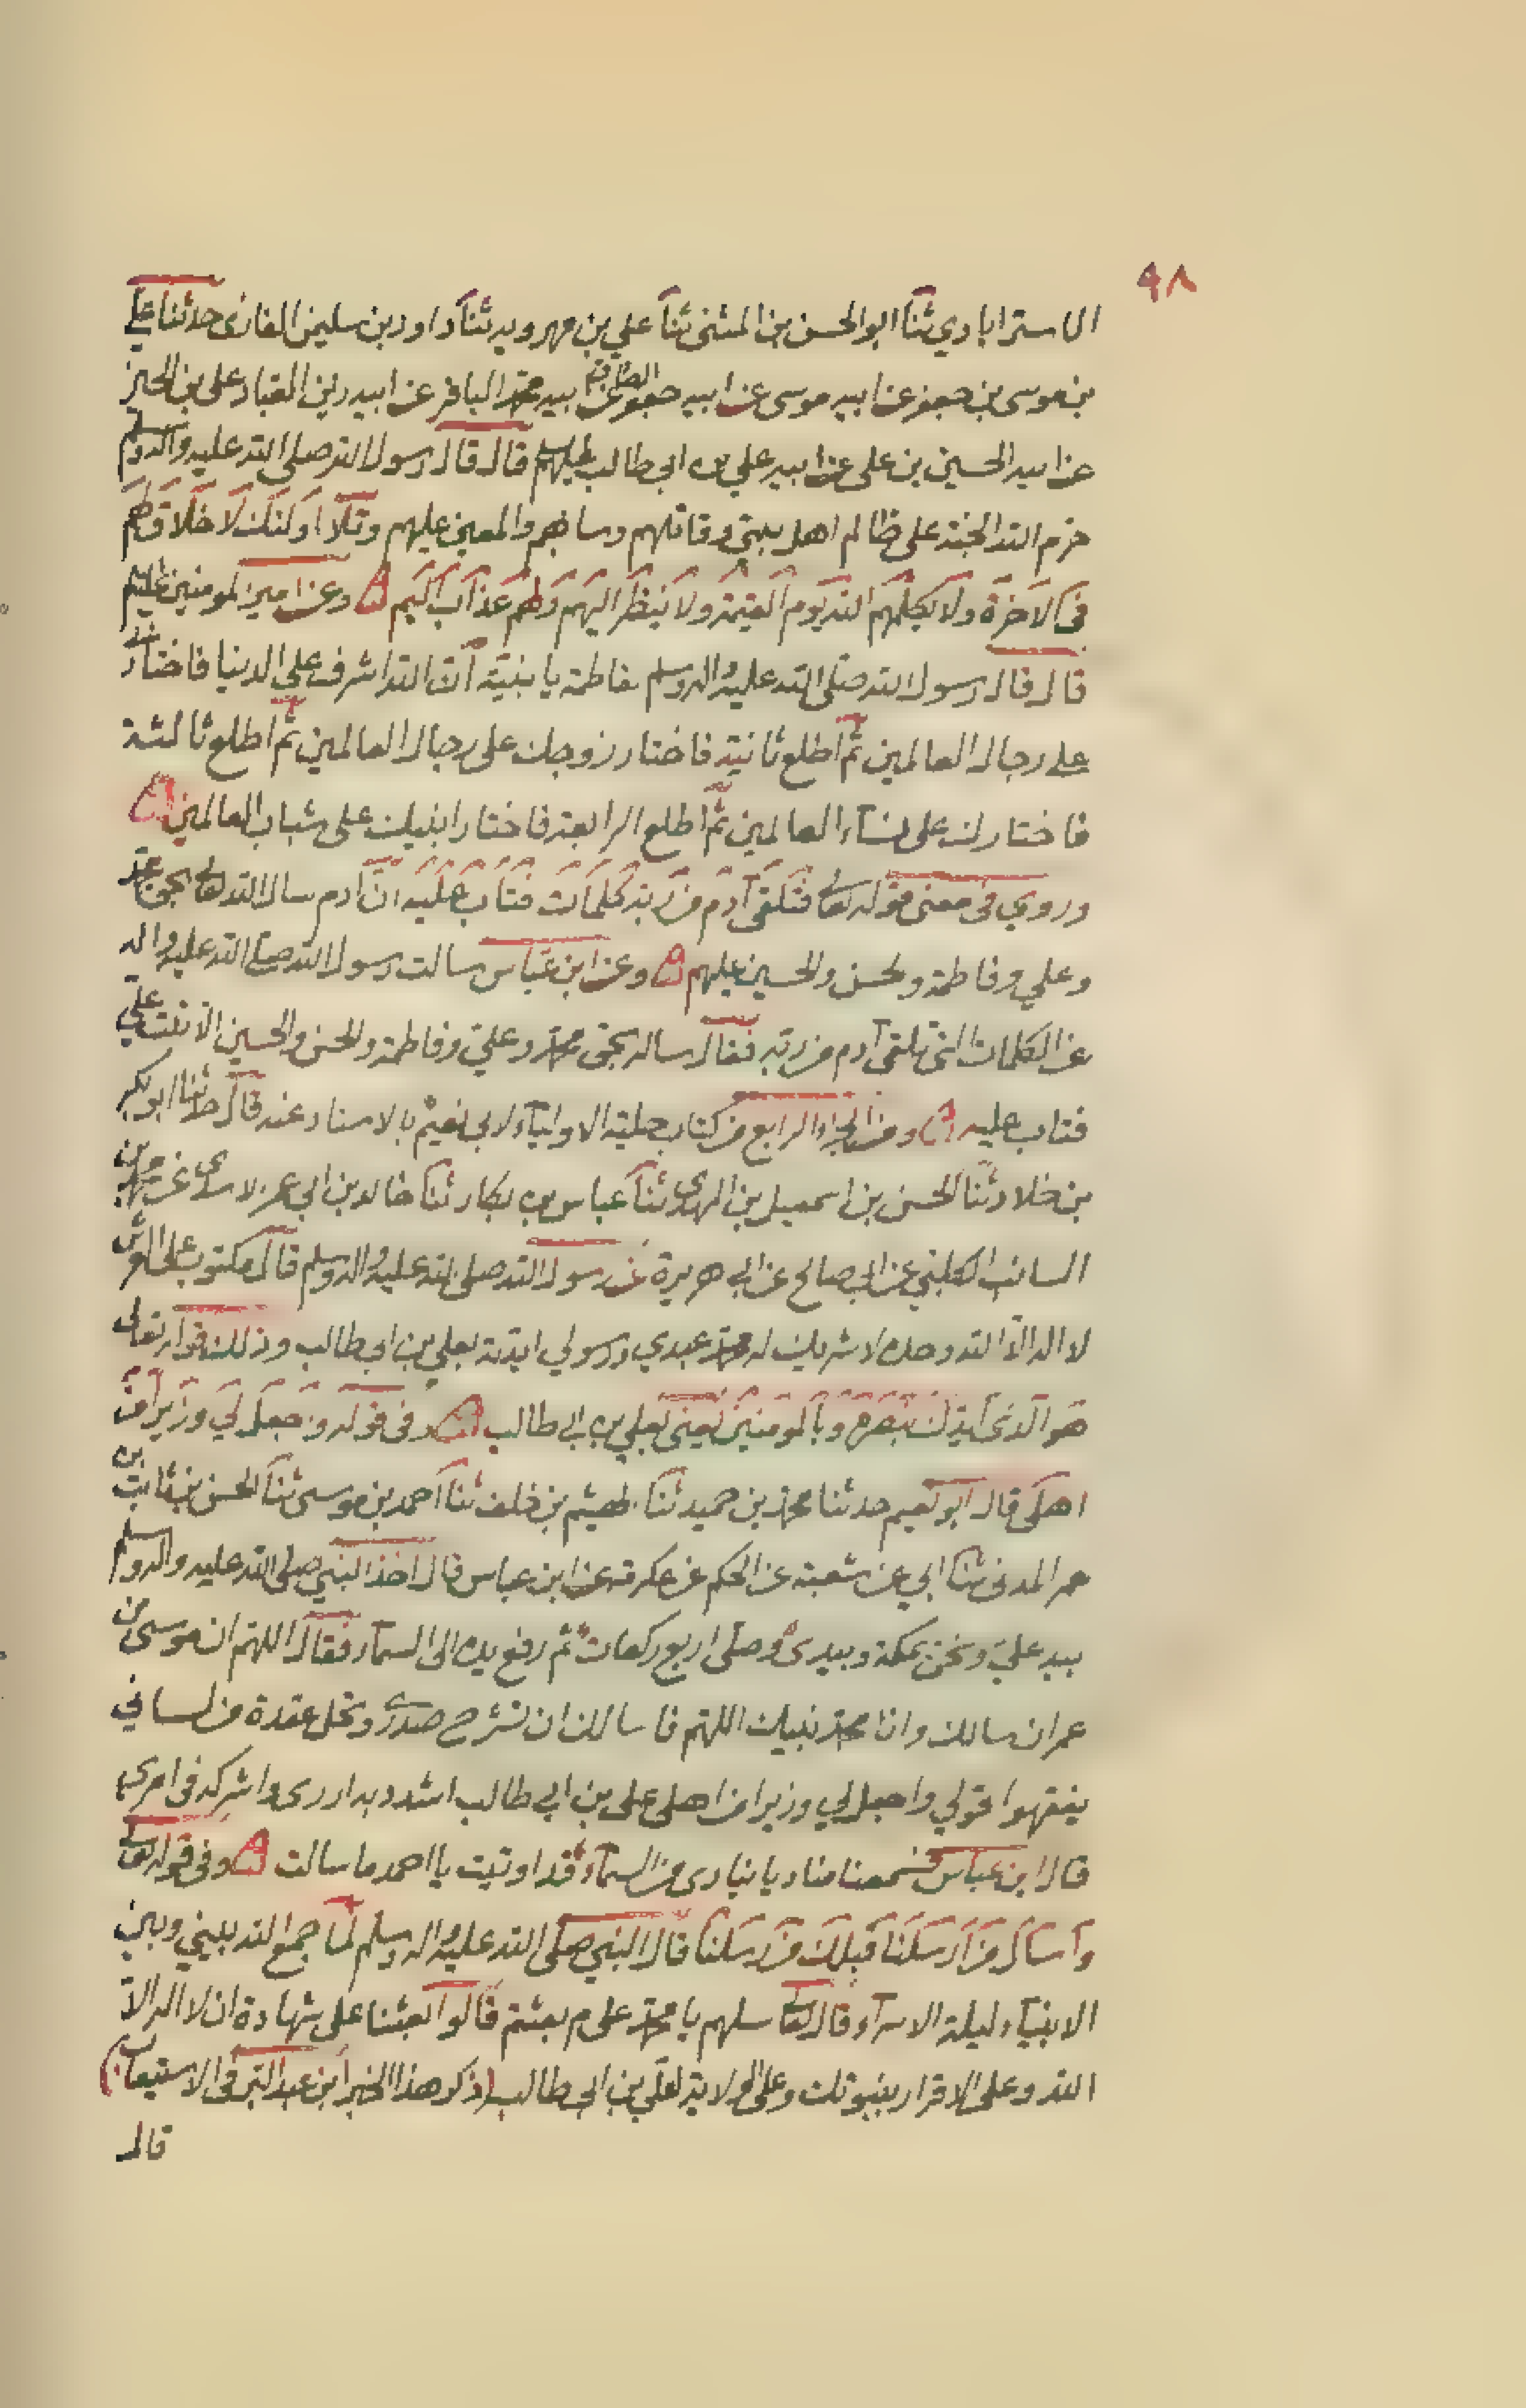 ٩٨
الاسترابادي ثنا ابو الحسن بن المثنى ثنا علي بن مهرويه ثنا داود بن سليمن الغازى حدثنا علي
بن موسى بن جعفر عن ابيه موسى عن ابيه جعفر الصادق عن ابيه محمد الباقر عن ابيه زين العباد على بن الحسين
عن ابيه الحسين بن على عن ابيه علي بن ابى طالب عليهم السلم قال قال رسول الله صلى الله عليه واله وسلم
حرم الله الجنة على ظالم اهل بيتى وقاتلهم وسابهم والمعين عليهم وتلا اولئك لا خلاق لهم
فى الاخرة ولا يكلمهم الله يوم القيمة ولا ينظر اليهم ولهم عذاب اليم وعن امير المومنين عليه السلم
قال قال رسول الله صلى الله عليه واله وسلم لفاطمة يا بنية ان الله اشرف على الدنيا فاختارنى
على رجال العالمين ثم اطلع ثانية فاختار زوجك على رجال العالمين ثم اطلع ثالثة
فاختارك على نسآء العالمين ثم اطلع الرابعة فاختار ابنيك على شباب العالمين
وروي فى معنى قوله تعالى فتلقى آدم من ربه كلمات فتاب عليه ان آدم سال الله تعالى بحق محمد
وعلي وفاطمة والحسن والحسين عليهم وعن ابن عباس سالت رسول الله صلى الله عليه واله
عن الكلمات التى تلقى آدم من ربه فقال ساله بحق محمد وعلي وفاطمة والحسن والحسين الا تبت علي
فتاب عليه ومن الجزء الرابع من كتاب حلية الاوليآء لابى نعيم بالاسناد عنه قال حدثنا ابو بكر
بن خلاد ثنا الحسن بن اسمعيل بن المهدى ثنا عباس بن بكار ثنا خالد بن ابي عمر الاسدى عن محمد بن
السائب الكلبي عن ابى صالح عن ابى هريرة عن رسول الله صلى الله عليه واله وسلم قال مكتوب على العرش
لا اله الا الله وحده لا شريك له محمد عبدي ورسولي ايدته بعلي بن ابى طالب وذلك قوله تعالى
هو الذى ايدك بنصره وبالمومنين يعنى بعلي بن ابى طالب وفى قوله واجعل لي وزيرا من
اهلى قال ابو نعيم حدثنا محمد بن حميد ثنا الهيثم بن خلف ثنا احمد بن موسى ثنا الحسن بن ثابت بن
عمر المدنى ثنا ابي عن شعبة عن الحكم عن عكرمة عن ابن عباس قال اخذ النبي صلى الله عليه واله وسلم
بيد علي ونحن بمكة وبيدى وصلى اربع ركعات ثم رفع يده الى السمآء فقال اللهم ان موسى بن
عمران سالك وانا محمد نبيك اللهم فاسالك ان تشرح صدرى وتحل عقدة من لساني
يفقهوا قولي واجعل لي وزيرا من اهلى على بن ابي طالب اشدد به ازرى واشركه فى امرى
قال ابن عباس فسمعنا مناديا ينادى من السمآء قد اوتيت يا احمد ما سالت وفى قوله تعالى
واسال من ارسلنا قبلك من رسلنا قال النبي صلى الله عليه واله وسلم لما جمع الله بيني وبين
الانبيآء ليلة الاسرآء قال تعالى سلهم يا محمد على م بعثتم قالوا بعثنا على شهادة ان لا اله الا
الله وعلى الاقرار بنبوتك وعلى الولاية لعلي بن ابى طالب (ذكر هذا الخبر ابن عبد البر فى الاستيعاب)
قال